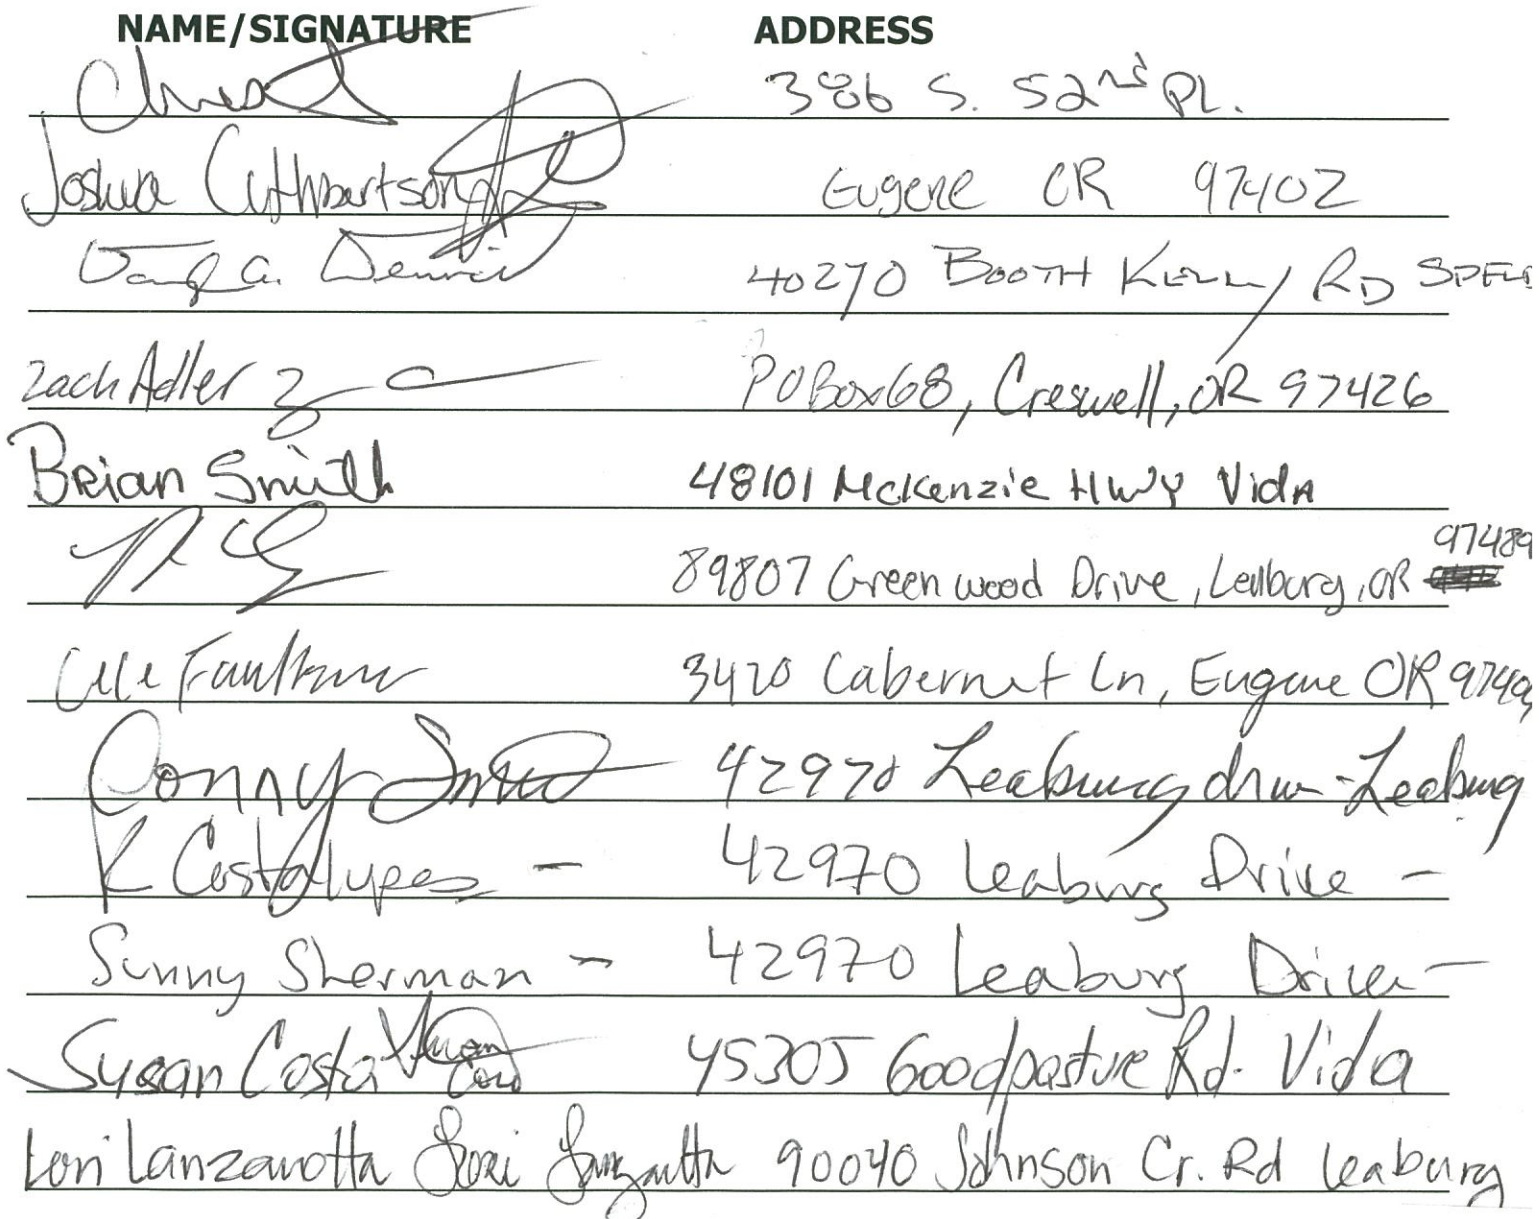 NAME/SIGNATURE ADDRESS
386 S. 52nd Pl.
Joshua Cuthbertson Eugene OR 97402
a. Dennis 40270 BOOTH KELLY RD SPFLD
Zach Adler PO Box 68, Creswell, OR 97426
Brian Smith 48101 McKenzie HWY Vida
97489
89807 Greenwood Drive, Leaburg, OR
Faulkner 3420 Cabernet Ln, Eugene OR 9740
Conny 42970 Leaburg drive - Leaburg
K Costalupes - 42970 Leaburg Drive -
Sunny Sherman - 42970 Leaburg Drive -
Susan Costa Susan Costa 45305 Goodpasture Rd. Vida
Lori Lanzarotta Lori Lanzarotta 90040 Johnson Cr. Rd Leaburg